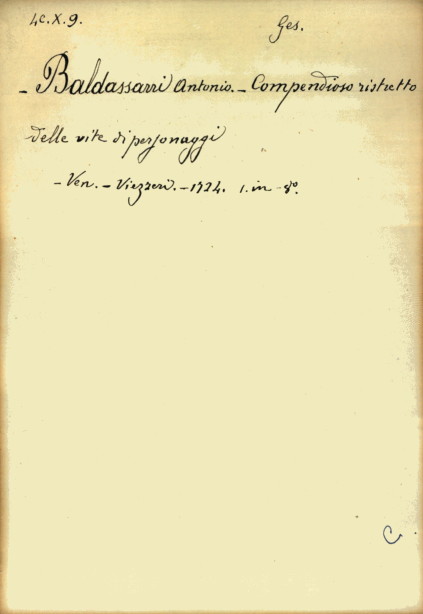 4c.X.9. Ges.
- Baldassarri Antonio. - Compendioso ristretto
delle vite di personaggi
- Ven. - Viezzeri. - 1724. 1. in - 8º.
C